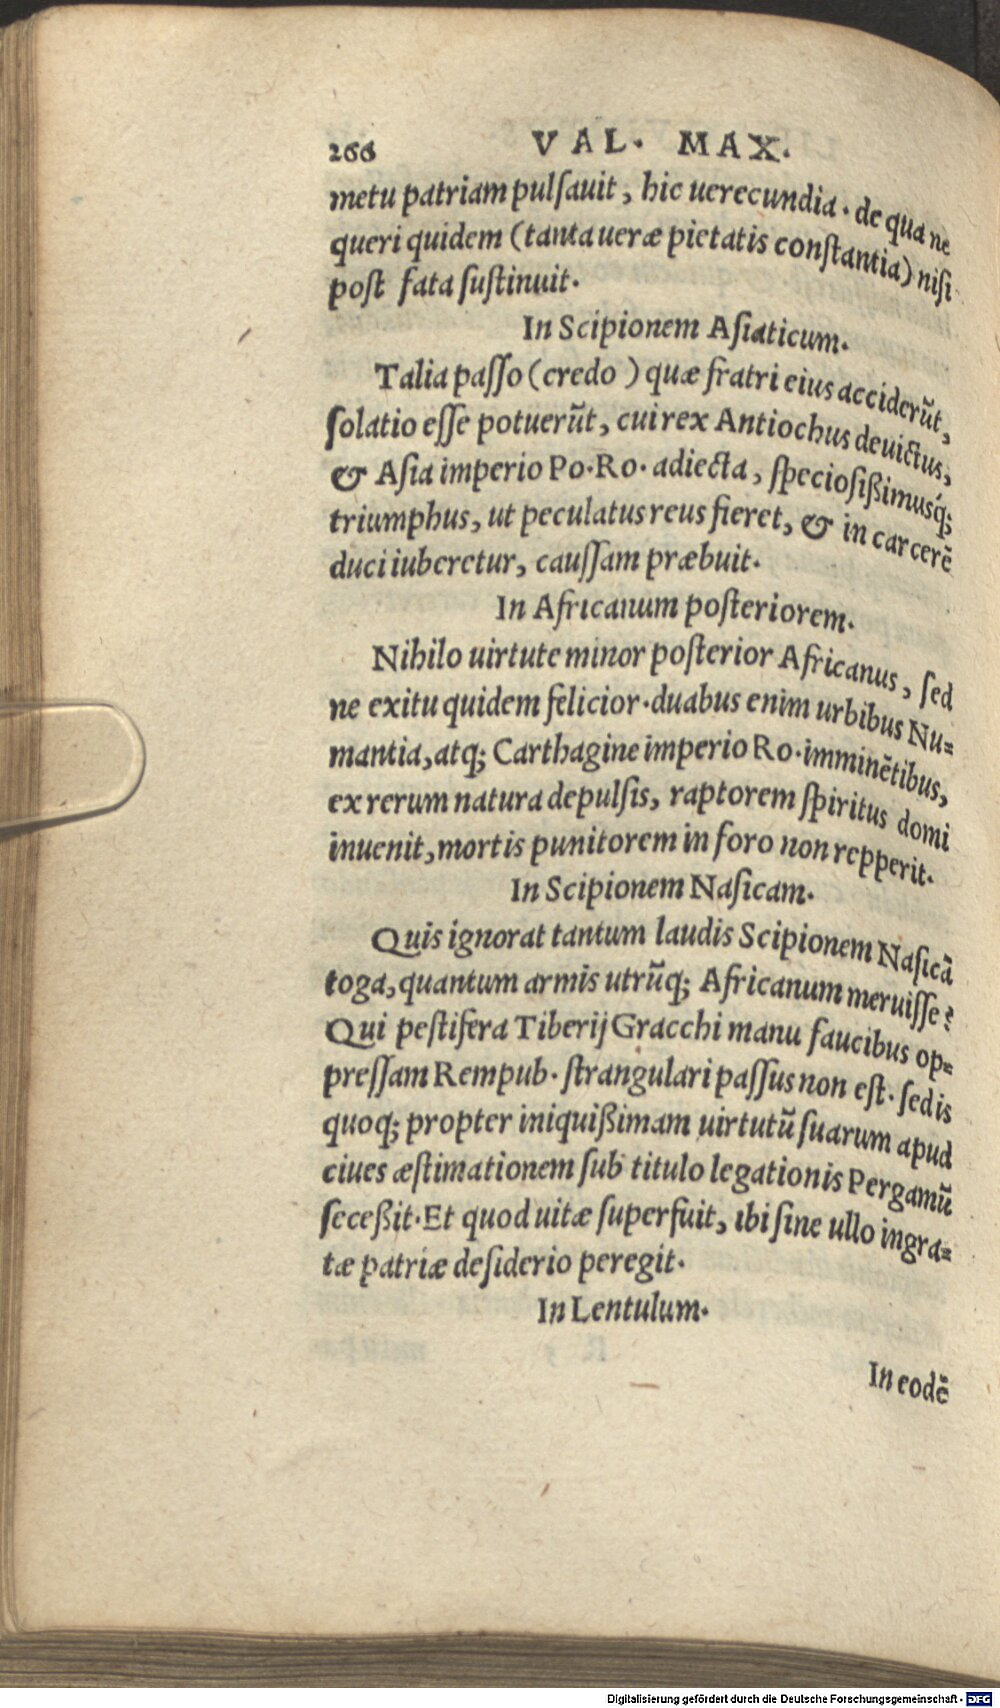 266 VAL. MAX.
metu patriam pulſauit, hic uerecundia. de qua ne
queri quidem (tanta ueræ pietatis conſtantia) niſi
poſt fata ſuſtinuit.
In Scipionem Aſiaticum.
Talia paſſo (credo) quæ fratri eius acciderūt,
ſolatio eſſe potuerūt, cui rex Antiochus deuictus,
& Aſia imperio Po. Ro. adiecta, ſpecioſißimusq́;
triumphus, ut peculatus reus fieret, & in carcerē
duci iuberetur, cauſſam præbuit.
In Africanum poſteriorem.
Nihilo uirtute minor poſterior Africanus, ſed
ne exitu quidem felicior. duabus enim urbibus Nu=
mantia, atq; Carthagine imperio Ro. imminētibus,
ex rerum natura depulſis, raptorem ſpiritus domi
inuenit, mortis punitorem in foro non repperit.
In Scipionem Naſicam.
Quis ignorat tantum laudis Scipionem Naſicā
toga, quantum armis utrūq; Africanum meruiſſe?
Qui peſtifera Tiberij Gracchi manu faucibus op=
preſſam Rempub. ſtrangulari paſſus non eſt. ſed is
quoq; propter iniquißimam uirtutū ſuarum apud
ciues æſtimationem ſub titulo legationis Pergamū
ſeceßit. Et quod uitæ ſuperfuit, ibi ſine ullo ingra=
tæ patriæ deſiderio peregit.
In Lentulum.
In eodē
Digitalisierung gefördert durch die Deutsche Forschungsgemeinschaft - DFG